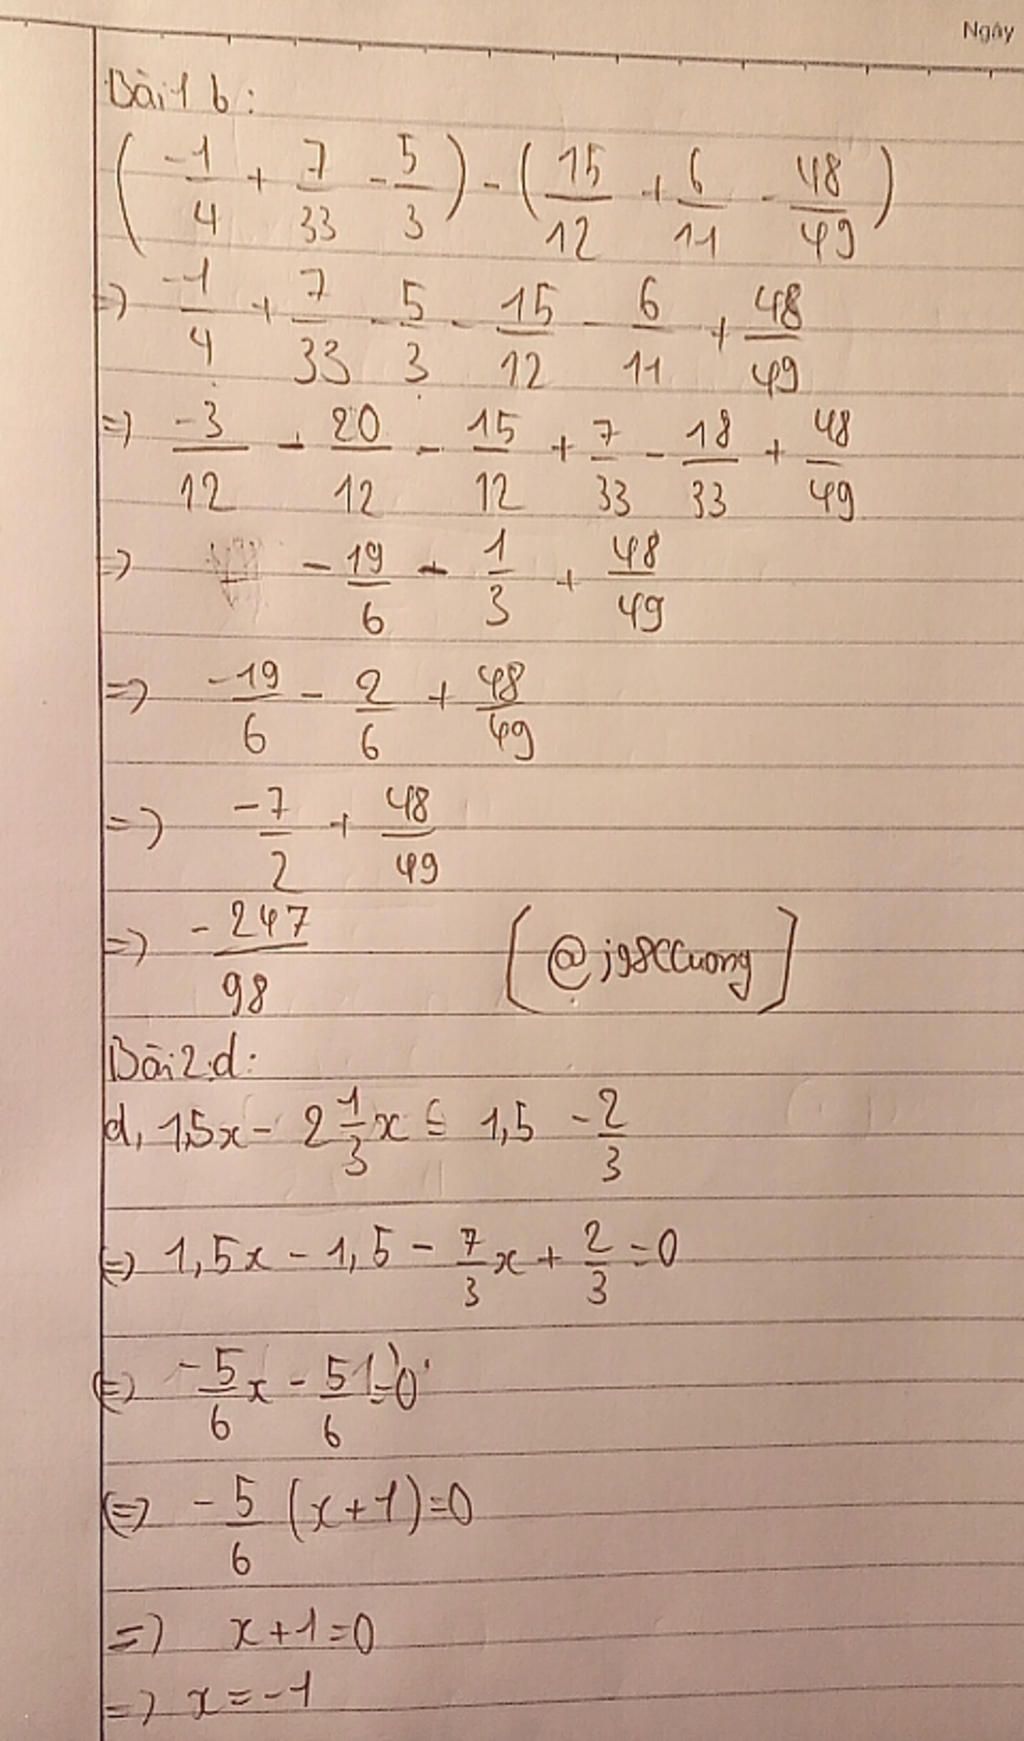 Ngày
Bài 1 b:
(-1/4 + 7/33 - 5/3) - (15/12 + 6/11 - 48/49)
=) -1/4 + 7/33 - 5/3 - 15/12 - 6/11 + 48/49
=) -3/12 - 20/12 - 15/12 + 7/33 - 18/33 + 48/49
=) - 19/6 - 1/3 + 48/49
=) -19/6 - 2/6 + 48/49
=) -7/2 + 48/49
=) -247/98 [@j98CCuong]
Bài 2.d:
d, 1,5x - 2 1/3 x = 1,5 - 2/3
(=) 1,5x - 1,5 - 7/3 x + 2/3 = 0
(=) -5/6 x - 5/6 = 0
(=) -5/6 (x+1)=0
=) x+1=0
=) x=-1